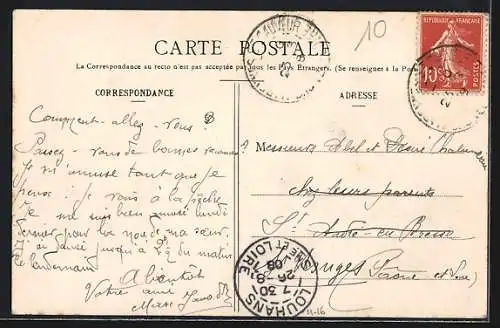 10
CARTE POSTALE
La Correspondance au recto n'est pas acceptée par tous les Pays Etrangers. (Se renseigner à la Poste)
CORRESPONDANCE
ADRESSE
REPUBLIQUE FRANÇAISE
10
POSTES
Comment allez-vous ?
Passez-vous de bonnes vacances ?
Je m'amuse tant que je
peux : je vais à la pêche
Je me suis bien amusé lundi
dernier pour la noce de ma sœur,
on a dansé jusqu'à 2h du matin
le lendemain
A bientôt
Votre ami
Messieurs Abel et
chez leurs parents
St André-en-Bresse
(Saône et Loire)
LOUHANS
7 30
26-8
08
SAÔNE ET LOIRE